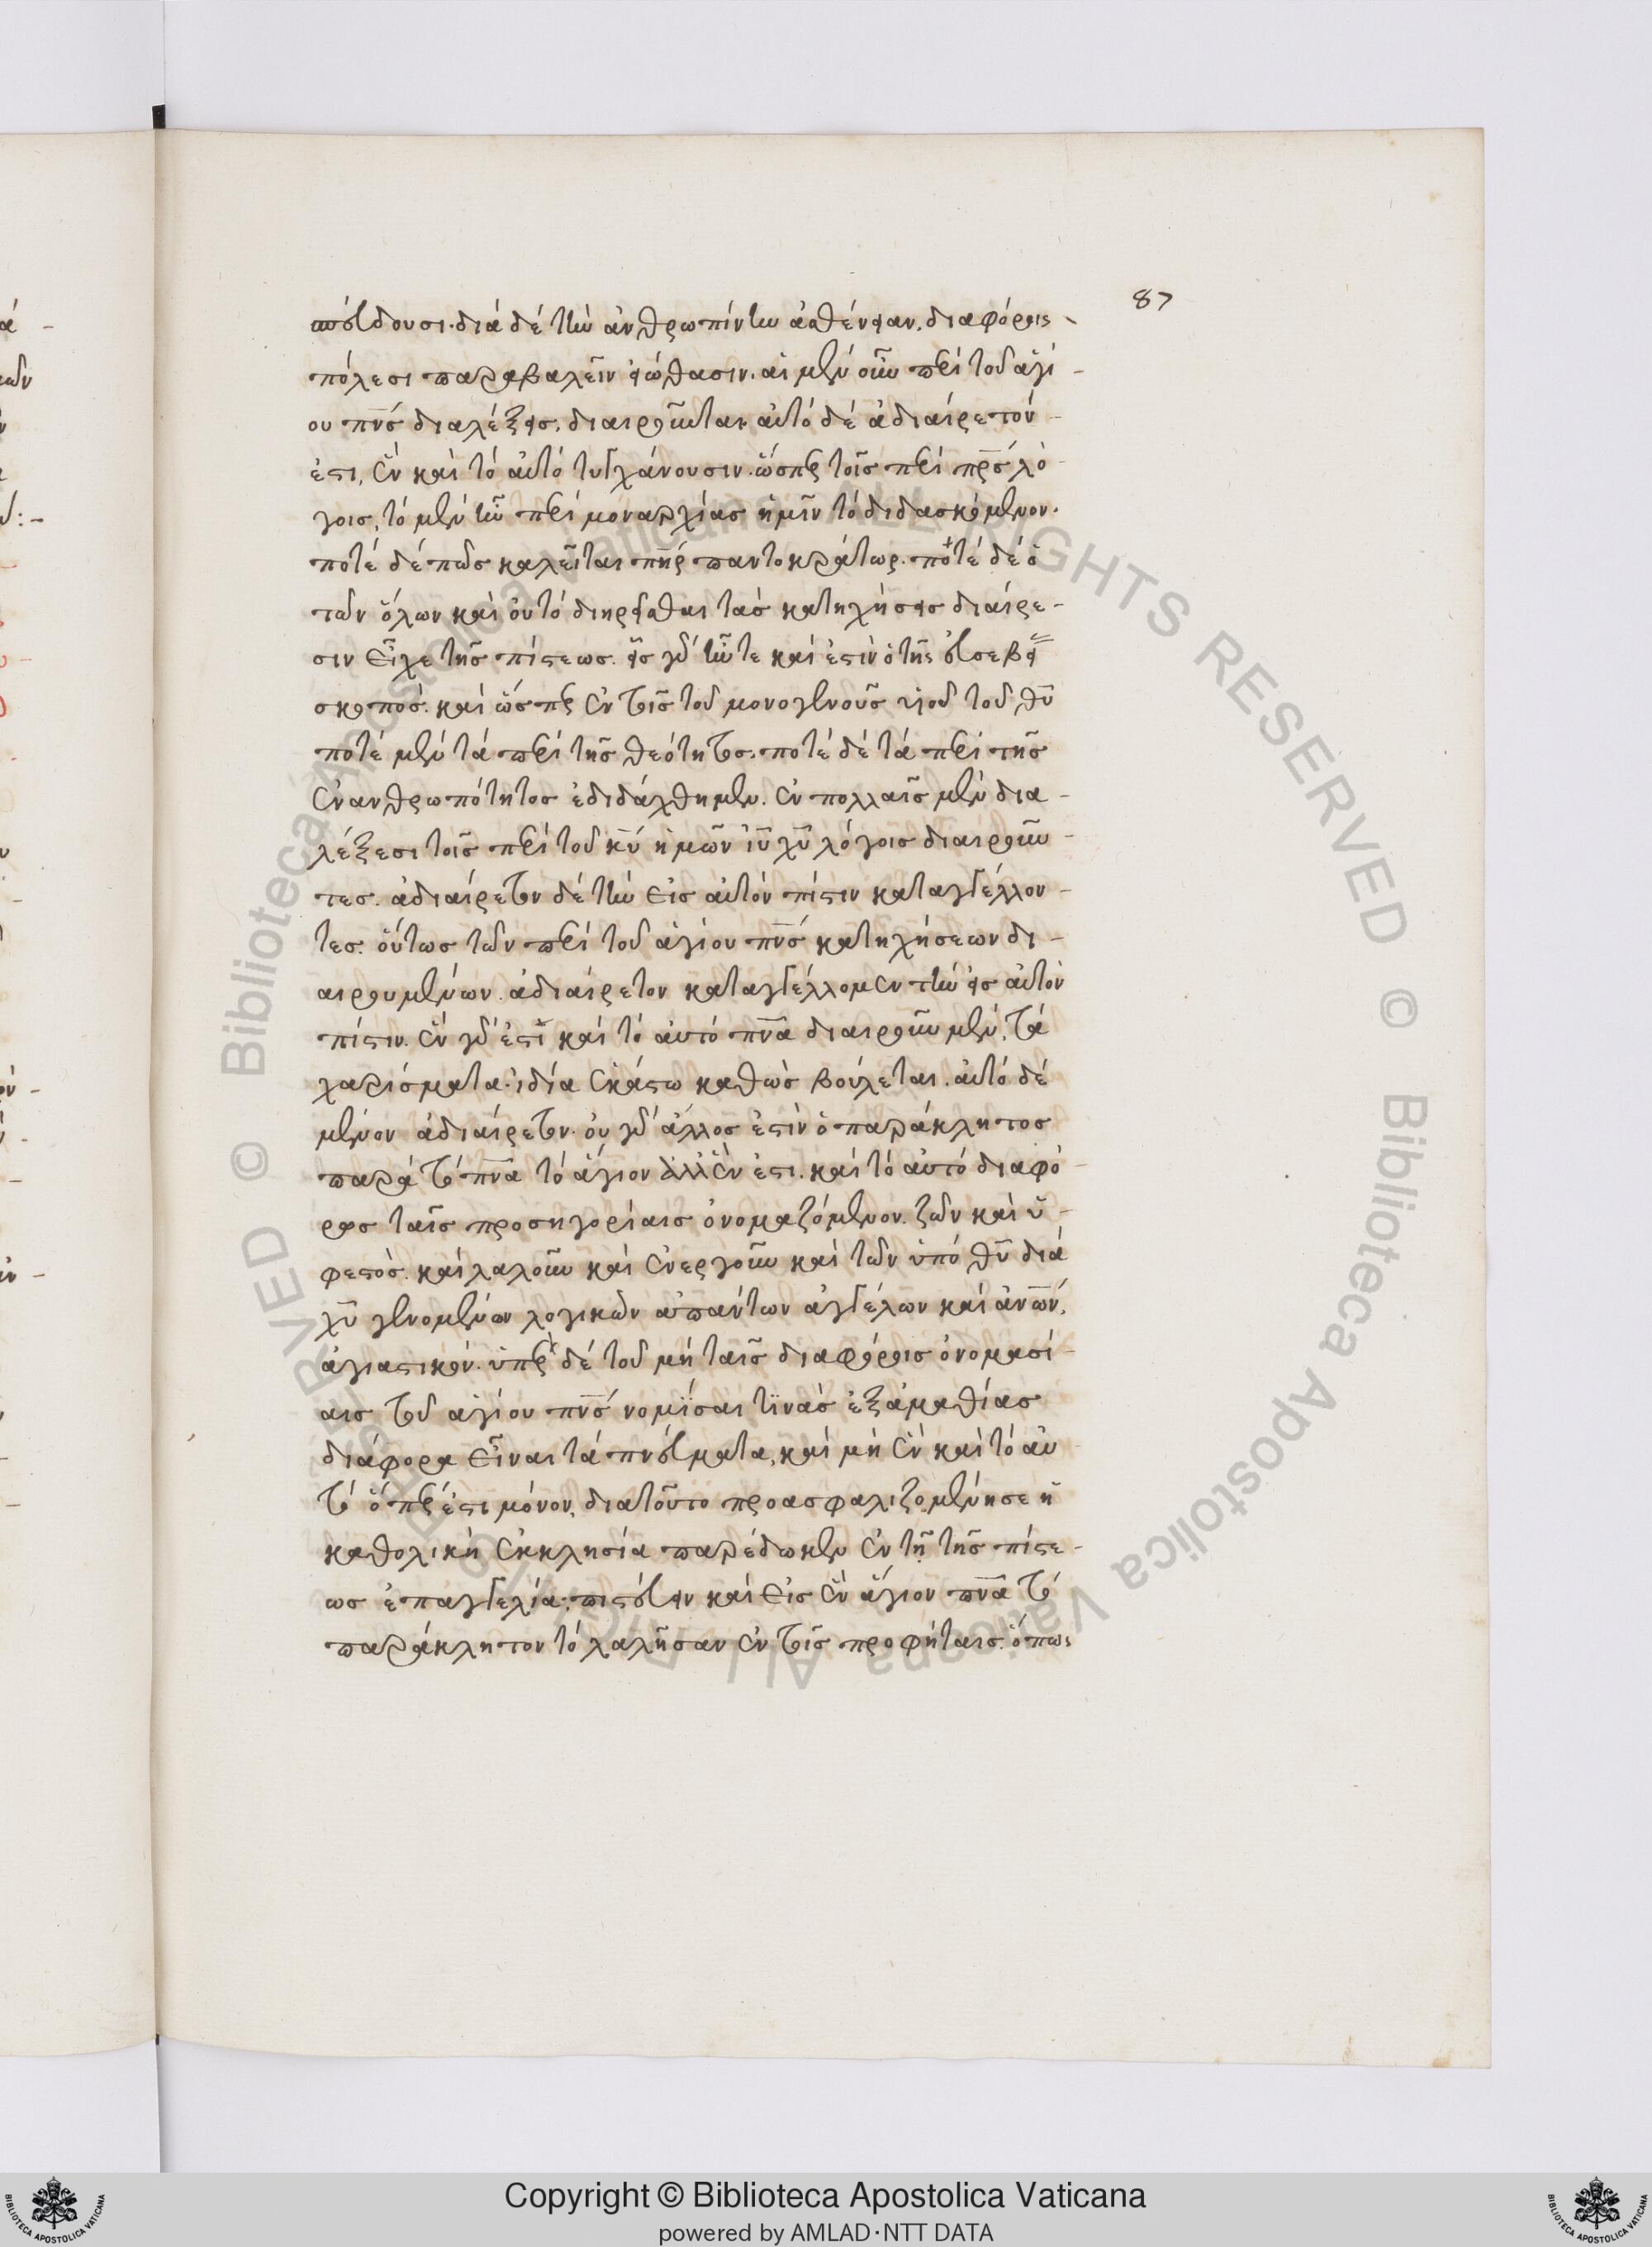 87
σπεύδουσι· διὰ δὲ τὴν ἀνθρωπίνην ἀσθένειαν, διαφόροις
πόλεσι παραβαλεῖν εἰώθασιν. αἱ μὲν οὖν περὶ τοῦ ἁγί-
ου πν̅ς διαλέξεις, διαιροῦνται· αὐτὸ δὲ ἀδιαίρετόν
ἐστι, ἓν καὶ τὸ αὐτὸ τυγχάνουσιν. ὥσπερ τοῖς περὶ πρ̅ς λό-
γοις, τὸ μὲν ἦν περὶ μοναρχίας ἡμῖν τὸ διδασκόμενον·
ποτὲ δὲ πῶς καλεῖται πη̅ρ παντοκράτωρ. ποτὲ δὲ ὁ
τῶν ὅλων καὶ οὐ τὸ διηρεῖσθαι τὰς κατηχήσεις διαίρε-
σιν εἶχε τῆς πίστεως. εἷς γὰρ ἦν τε καὶ ἐστὶν ὁ τῆς εὐσεβεί
σκοπός. καὶ ὥσπερ ἐν τοῖς τοῦ μονογενοῦς υἱοῦ τοῦ θ̅υ
ποτὲ μὲν τὰ περὶ τῆς θεότητος. ποτὲ δὲ τὰ περὶ τῆς
ἐνανθρωπότητος ἐδιδάχθημεν. ἐν πολλαῖς μὲν δια-
λέξεσι τοῖς περὶ τοῦ κ̅υ ἡμῶν ι̅υ χ̅υ λόγοις διαιροῦν
τες. ἀδιαίρετον δὲ τὴν εἰς αὐτὸν πίστιν καταγγέλλον-
τες. οὕτως τῶν περὶ τοῦ ἁγίου πν̅ς κατηχήσεων δι-
αιρουμένων. ἀδιαίρετον καταγγέλλομεν τὴν εἰς αὐτὸν
πίστιν. ἓν γὰρ ἐστὶ καὶ τὸ αὐτὸ πν̅α διαιροῦν μὲν, τὰ
χαρίσματα· ἰδία ἑκάστω καθὼς βούλεται. αὐτὸ δὲ
μένον ἀδιαίρετον. οὐ γὰρ ἄλλος ἐστὶν ὁ παράκλητος
παρὰ τὸ πν̅α τὸ ἅγιον ἀλλ' ἓν ἐστι. καὶ τὸ αὐτὸ διαφό
ροις ταῖς προσηγορίαις ὀνομαζόμενον. ζῶν καὶ ὑ-
φεστός. καὶ λαλοῦν καὶ ἐνεργοῦν καὶ τῶν ὑπὸ θ̅υ διὰ
χ̅υ γενομένων λογικῶν ἁπάντων ἀγγέλων καὶ ἀν̅ων,
ἁγιαστικόν. ὑπὲρ δὲ τοῦ μὴ ταῖς διαφόροις ὀνομασί-
αις τοῦ ἁγίου πν̅ς νομίσαι τινὰς ἐξ ἀμαθίας
διάφορα εἶναι τὰ πνεύματα, καὶ μὴ ἓν καὶ τὸ αὐ
τὸ ὅπερ ἐστι μόνον, διατοῦτο προασφαλιζομένη σε ἡ
καθολικὴ ἐκκλησία παρέδωκεν ἐν τῇ τῆς πίστε-
ως ἐπαγγελία· πιστεύειν καὶ εἰς ἓν ἅγιον πν̅α τὸ
παράκλητον τὸ λαλῆσαν ἐν τοῖς προφήταις. ὅπως
Copyright © Biblioteca Apostolica Vaticana
powered by AMLAD·NTT DATA